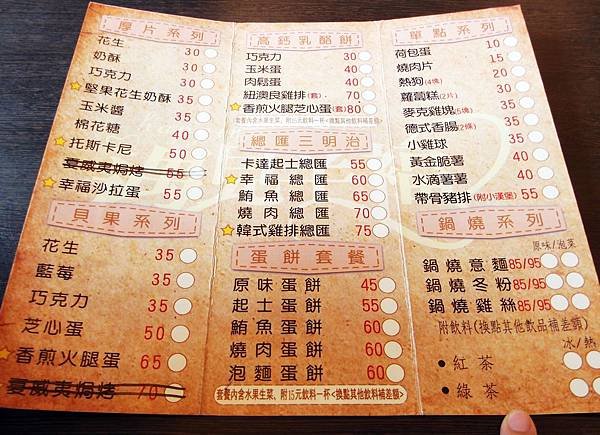 厚片系列
花生 30
奶酥 30
巧克力 30
堅果花生奶酥 35
玉米醬 35
棉花糖 40
托斯卡尼 50
夏威夷焗烤 55
幸福沙拉蛋 55
貝果系列
花生 35
藍莓 35
巧克力 35
芝心蛋 50
香煎火腿蛋 65
夏威夷焗烤 70
高鈣乳酪餅
巧克力 30
玉米蛋 40
肉鬆蛋 40
紐澳良雞排(套) 70
香煎火腿芝心蛋(套) 80
(套餐內含水果生菜、附15元飲料一杯<換點其他飲料補差額>)
總匯三明治
卡達起士總匯 55
幸福總匯 60
鮪魚總匯 65
燒肉總匯 70
韓式雞排總匯 75
蛋餅套餐
原味蛋餅 45
起士蛋餅 55
鮪魚蛋餅 60
燒肉蛋餅 60
泡麵蛋餅 60
套餐內含水果生菜、附15元飲料一杯<換點其他飲料補差額>
單點系列
荷包蛋 10
燒肉片 15
熱狗(4塊) 20
蘿蔔糕(2片) 30
麥克雞塊(5塊) 35
德式香腸(2條) 35
小雞球 35
黃金脆薯 40
水滴薯薯 40
帶骨豬排(附小漢堡) 55
鍋燒系列
原味/泡菜
鍋燒意麵 85/95
鍋燒冬粉 85/95
鍋燒雞絲 85/95
附飲料(換點其他飲品補差額)
冰/熱
•紅茶
•綠茶